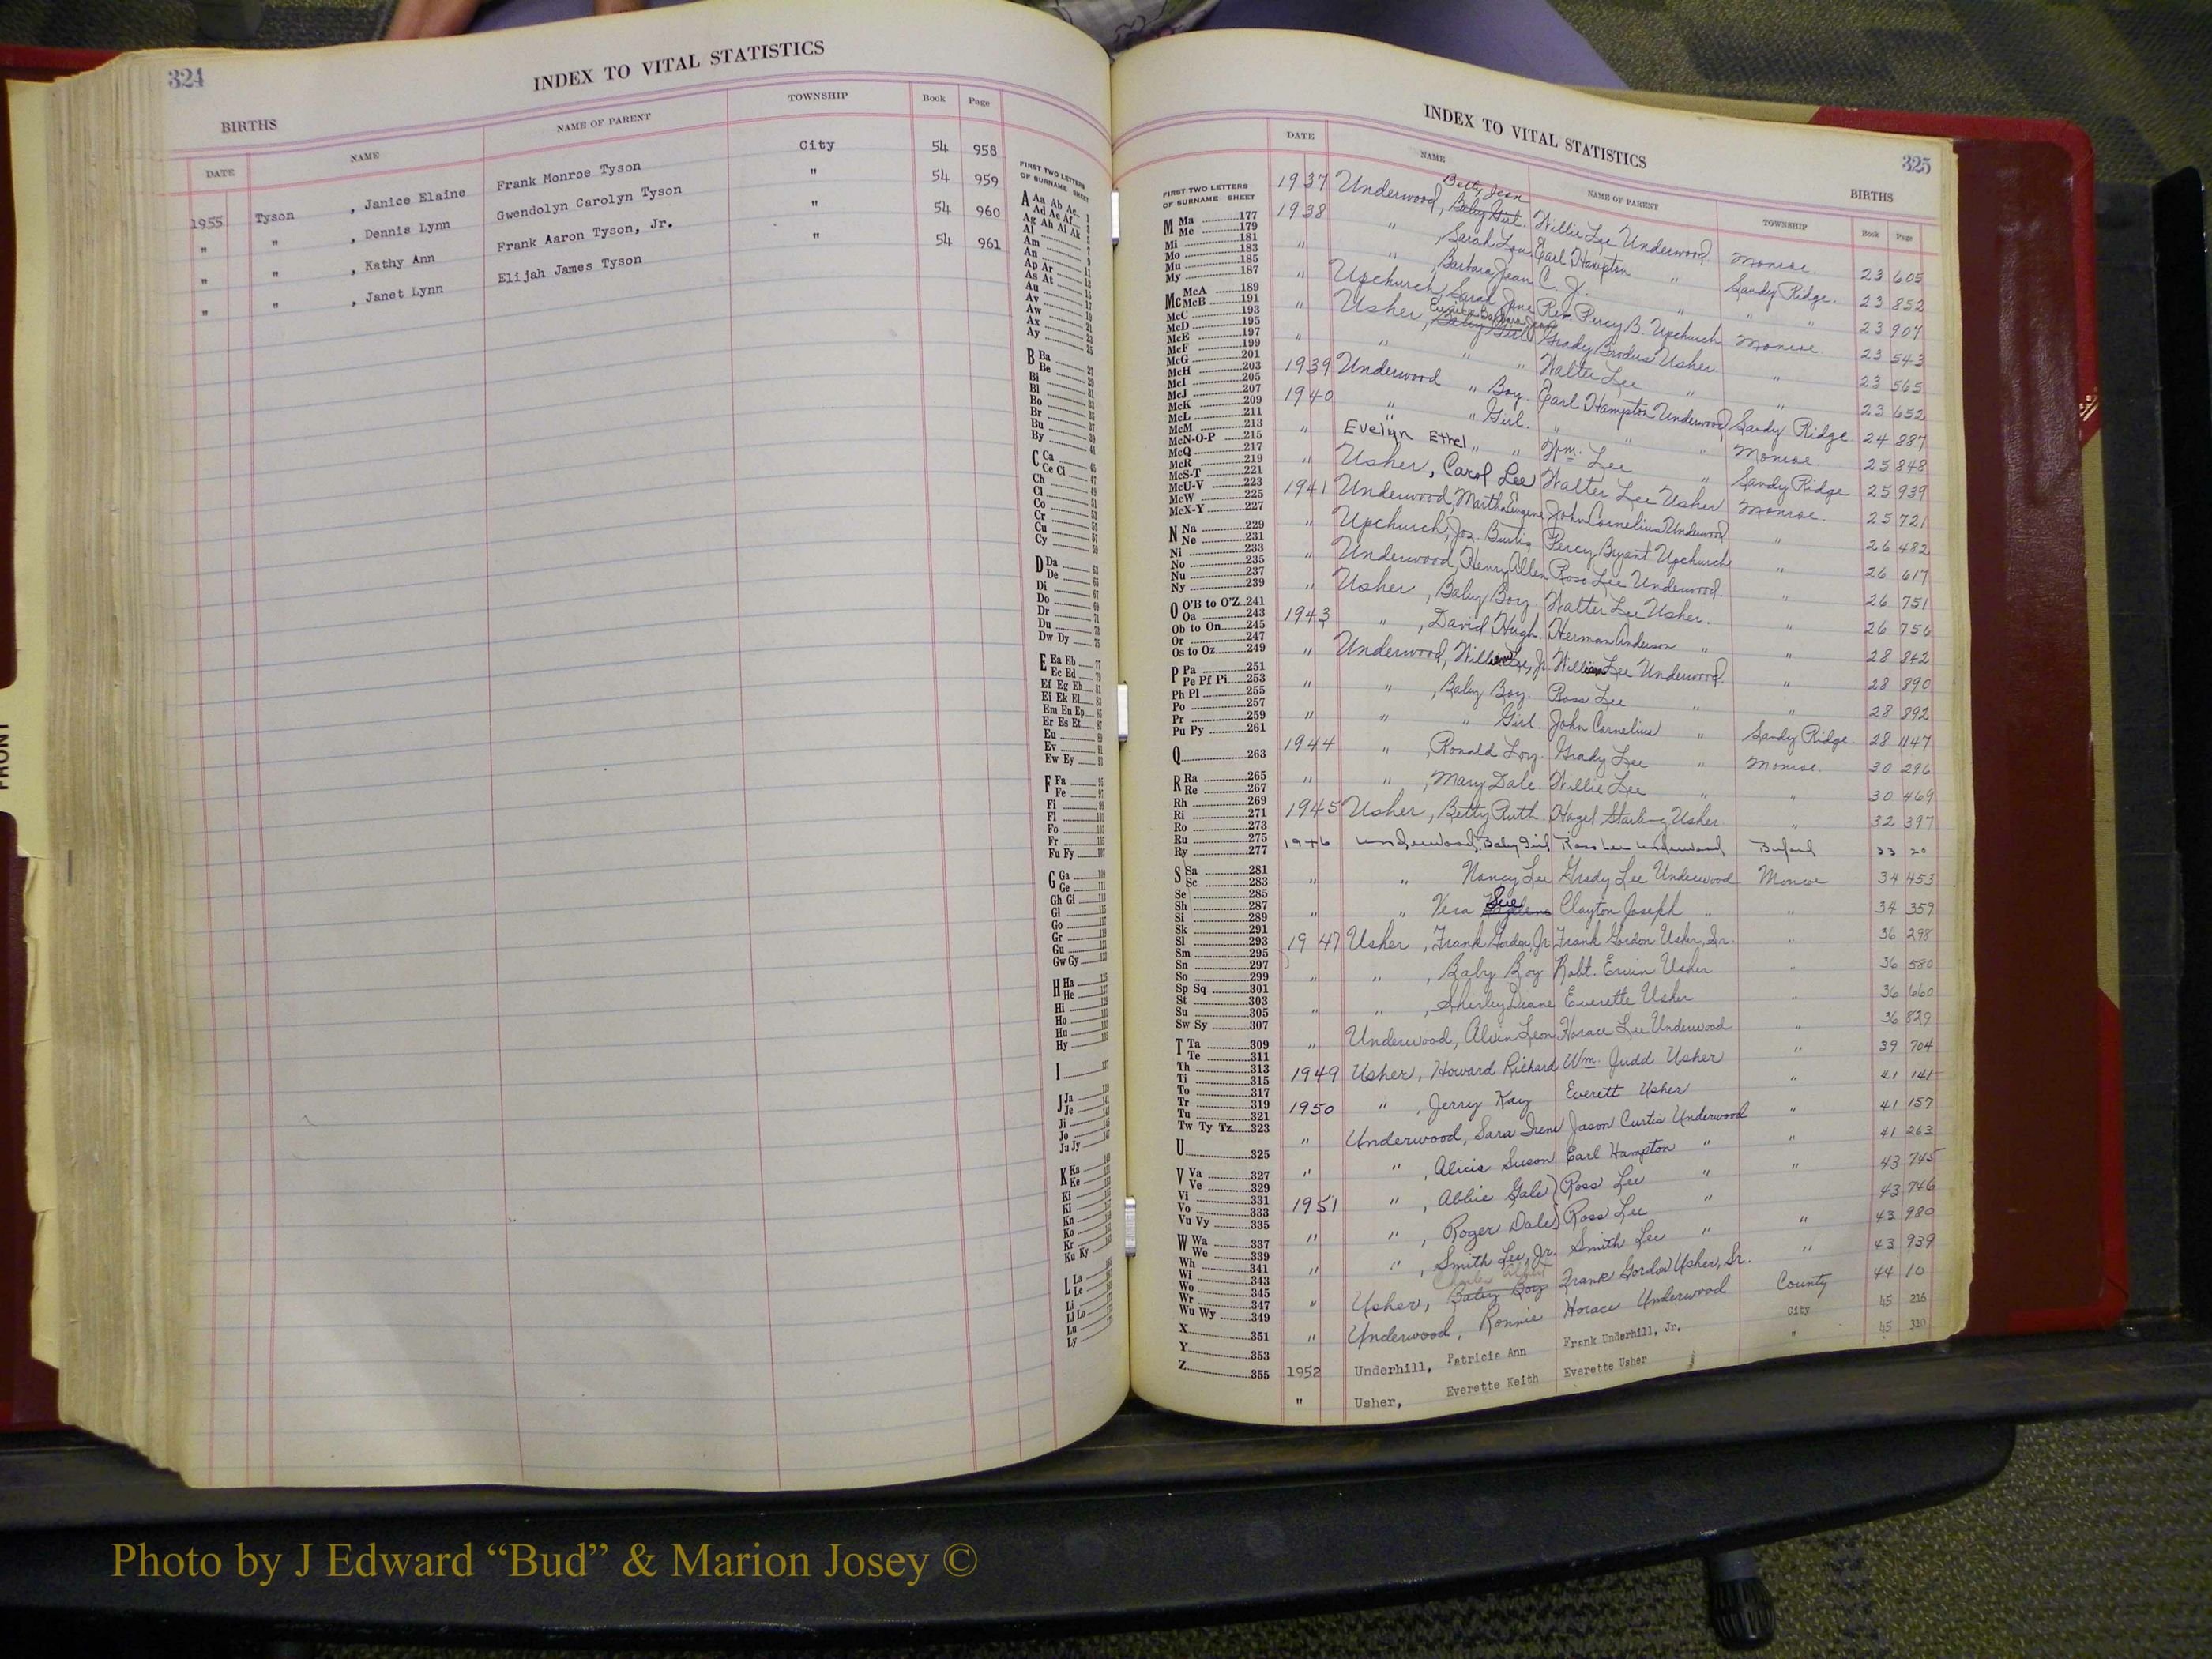 324
INDEX TO VITAL STATISTICS
BIRTHS
DATE NAME NAME OF PARENT TOWNSHIP Book Page
1955 Tyson , Janice Elaine Frank Monroe Tyson City 54 958
" " , Dennis Lynn Gwendolyn Carolyn Tyson " 54 959
" " , Kathy Ann Frank Aaron Tyson, Jr. " 54 960
" " , Janet Lynn Elijah James Tyson " 54 961
FIRST TWO LETTERS
OF SURNAME SHEET
A Aa Ab Ac
Ad Ae Af
Ag Ah Ai Ak
Al
Am
An
Ap Ar
As At
Au
Av
Aw
Ax
Ay
B Ba
Be
Bi
Bl
Bo
Br
Bu
By
C Ca
Ce Ci
Ch
Cl
Co
Cr
Cu
Cy
D Da
De
Di
Do
Dr
Du
Dw Dy
E Ea Eb
Ec Ed
Ef Eg Eh
Ei Ek El
Em En Ep
Er Es Et
Eu
Ev
Ew Ey
F Fa
Fe
Fi
Fl
Fo
Fr
Fu Fy
G Ga
Ge
Gh Gi
Gl
Go
Gr
Gu
Gw Gy
H Ha
He
Hi
Ho
Hu
Hy
I
J Ja
Je
Ji
Jo
Ju Jy
K Ka
Ke
Kl
Ki
Kn
Ko
Kr
Ku Ky
L La
Le
Li
Ll Lo
Lu
Ly
FRONT
325
INDEX TO VITAL STATISTICS
BIRTHS
FIRST TWO LETTERS
OF SURNAME SHEET
M Ma 177
Me 179
Mi 181
Mo 183
Mu 185
My 187
Mc McA 189
McB 191
McC 193
McD 195
McE 197
McF 199
McG 201
McH 203
McI 205
McJ 207
McK 209
McL 211
McM 213
McN-O-P 215
McQ 217
McR 219
McS-T 221
McU-V 223
McW 225
McX-Y 227
N Na 229
Ne 231
Ni 233
No 235
Nu 237
Ny 239
O O'B to O'Z 241
Oa 243
Ob to On 245
Or 247
Os to Oz 249
P Pa 251
Pe Pf Pi 253
Ph Pl 255
Po 257
Pr 259
Pu Py 261
Q 263
R Ra 265
Re 267
Rh 269
Ri 271
Ro 273
Ru 275
Ry 277
S Sa 281
Sc 283
Se 285
Sh 287
Si 289
Sk 291
Sl 293
Sm 295
Sn 297
So 299
Sp Sq 301
St 303
Su 305
Sw Sy 307
T Ta 309
Te 311
Th 313
Ti 315
To 317
Tr 319
Tu 321
Tw Ty Tz 323
U 325
V Va 327
Ve 329
Vi 331
Vo 333
Vu Vy 335
W Wa 337
We 339
Wh 341
Wi 343
Wo 345
Wr 347
Wu Wy 349
X 351
Y 353
Z 355
DATE NAME NAME OF PARENT TOWNSHIP Book Page
Betty Jean
1937 Underwood, Baby Girl. Willie Lee Underwood. Monroe. 23 605
1938 " Sarah Lou. Earl Hampton " Sandy Ridge. 23 852
" " , Barbara Jean C. J. " " " 23 907
" Upchurch, Sarah Jane Rev. Percy B. Upchurch Monroe. 23 543
" Usher, Baby Girl Grady Brodus Usher. " 23 565
" " " Walter Lee " " 23 652
1939 Underwood " Boy. Earl Hampton Underwood Sandy Ridge 24 887
1940 " " Girl. " " Monroe. 25 848
" Evelyn Ethel " " Wm. Lee " Sandy Ridge 25 939
" Usher, Carol Lee Walter Lee Usher Monroe. 25 721
1941 Underwood, Martha Eugene John Cornelius Underwood " 26 482
" Upchurch, Jos. Burtis Percy Bryant Upchurch " 26 617
" Underwood, Henry Allen Ross Lee Underwood. " 26 751
" Usher , Baby Boy. Walter Lee Usher. " 26 756
1943 " , David Hugh. Herman Anderson " " 28 842
" Underwood, William Lee, Jr. William Lee Underwood. " 28 890
" " , Baby Boy. Ross Lee " " 28 892
" " " Girl. John Cornelius " Sandy Ridge. 28 1147
1944 " , Ronald Loy. Grady Lee " Monroe. 30 296
" " , Mary Dale. Willie Lee " " 30 469
1945 Usher, Betty Ruth. Hazel Starling Usher. " 32 397
1946 Underwood, Baby Girl Ross Lee Underwood Buford 33 20
" " Nancy Lee Grady Lee Underwood Monroe 34 453
" " Vera Sue Clayton Joseph " " 34 359
1947 Usher , Frank Gordon, Jr. Frank Gordon Usher, Sr. " 36 298
" " , Baby Boy Robt. Erwin Usher " 36 580
" " , Shirley Deane Everette Usher " 36 660
" Underwood, Alvin Leon Horace Lee Underwood " 36 829
1949 Usher, Howard Richard Wm. Judd Usher " 39 704
1950 " , Jerry Kay Everett Usher " 41 141
" Underwood, Sara Irene Jason Curtis Underwood " 41 157
" " , Alicia Susan Earl Hampton " " 41 263
1951 " , Abbie Gale Ross Lee " " 43 745
" " , Roger Dale Ross Lee " 43 746
" " , Smith Lee, Jr. Smith Lee " " 43 980
Charles Albert
" Usher, Baby Boy Frank Gordon Usher, Sr. " 43 939
" Underwood, Ronnie Horace Underwood County 44 10
1952 Underhill, Patricia Ann Frank Underhill, Jr. City 45 216
" Usher, Everette Keith Everette Usher " 45 310
Photo by J Edward “Bud” & Marion Josey ©